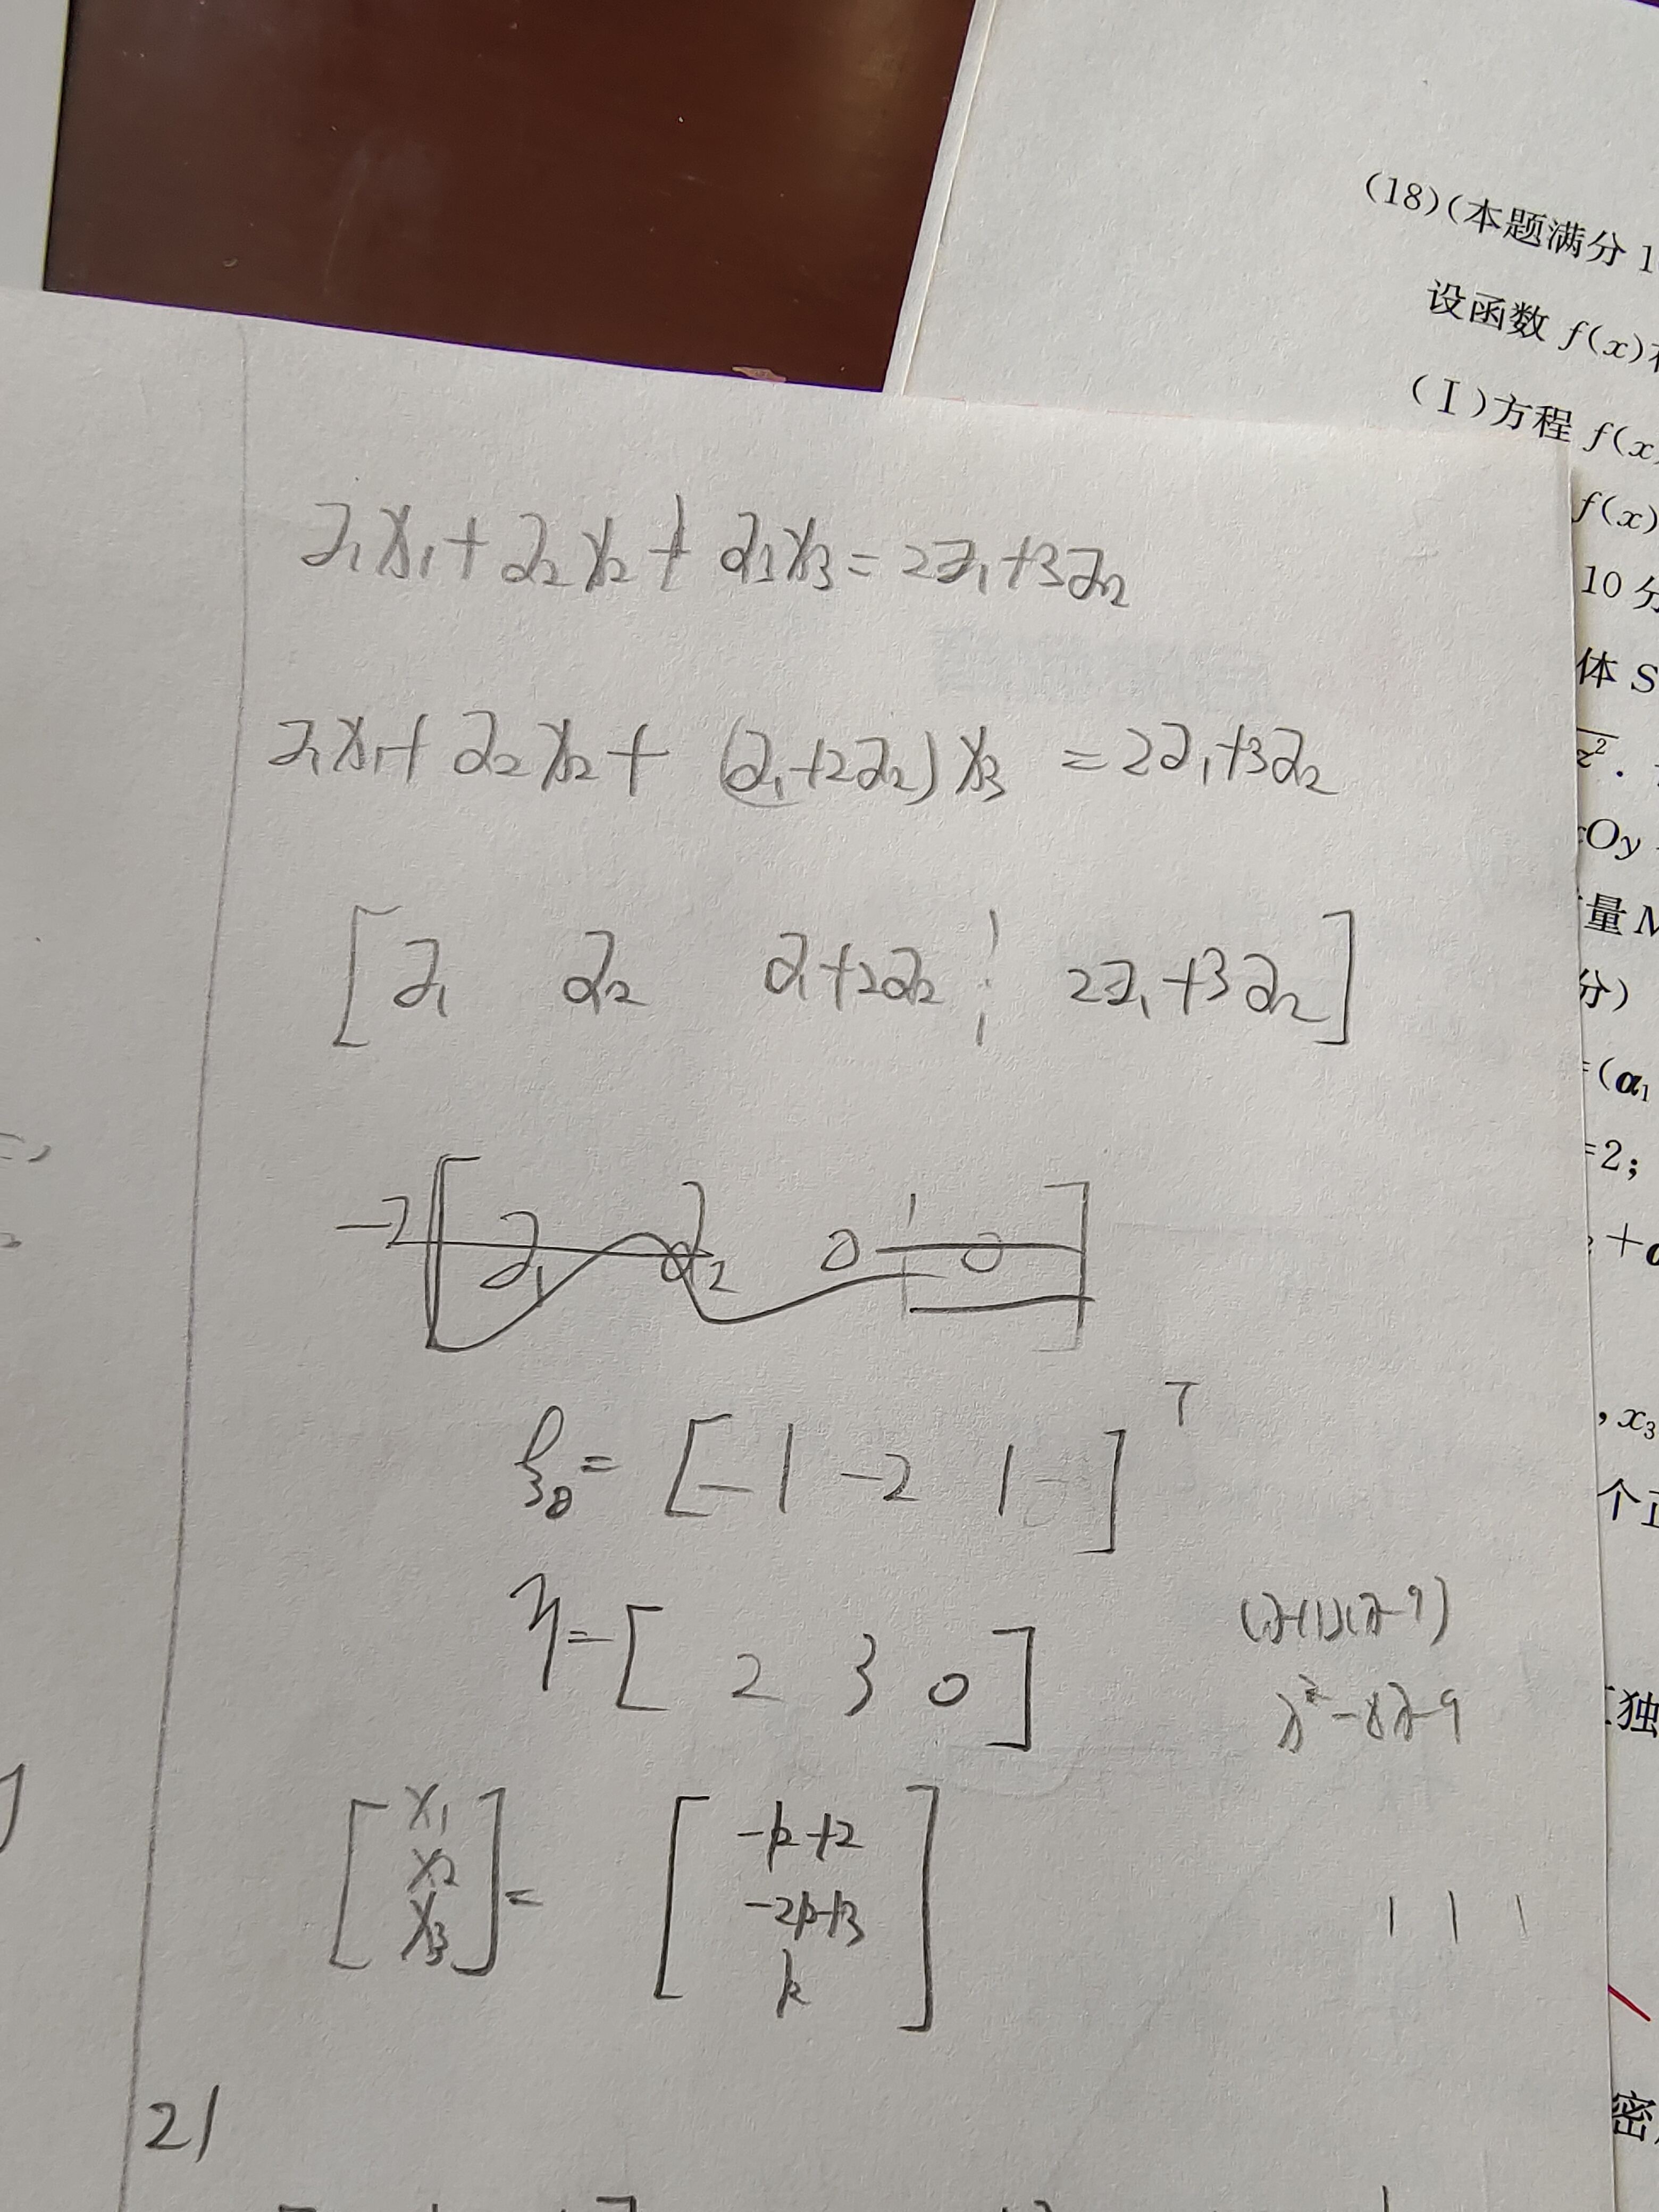 (18)(本题满分 1
设函数 f(x)
(Ⅰ)方程 f(x)
f(x)
10 分
体 S
z².
Oy
量 M
分)
=(α₁
=2;
+α
,x₃
个正
独
密
α₁x₁+α₂x₂+α₃x₃=2α₁+3α₂
α₁x₁+α₂x₂+(α₁+2α₂)x₃=2α₁+3α₂
[α₁ α₂ α₁+2α₂ ¦ 2α₁+3α₂]
ξ₀=[-1 -2 1]ᵀ
η=[2 3 0]
λ²-8λ-9
[x₁ x₂ x₃]=[-k+2 -2k+3 k]
1 1 1
21